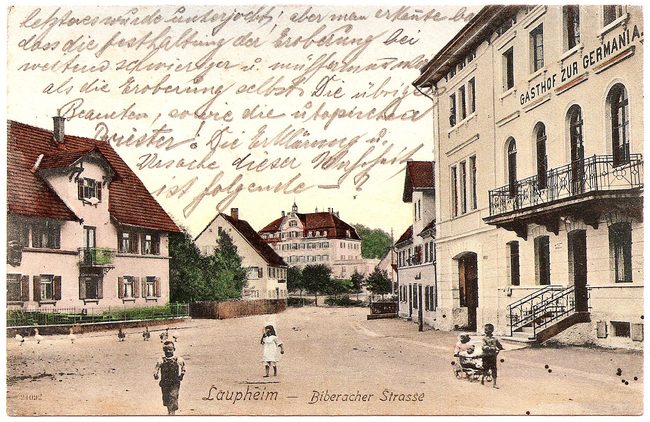 letzteres wurde unterjocht, aber man erkannte
dass die Festhaltung der Eroberung bei
weitem schwieriger u.
als die Eroberung selbst. Die übrigen
Beamten, sowie die
Priester! Die Erklärung u.
Ursache dieser
ist folgende — ?
GASTHOF ZUR GERMANIA
21092
Laupheim — Biberacher Strasse